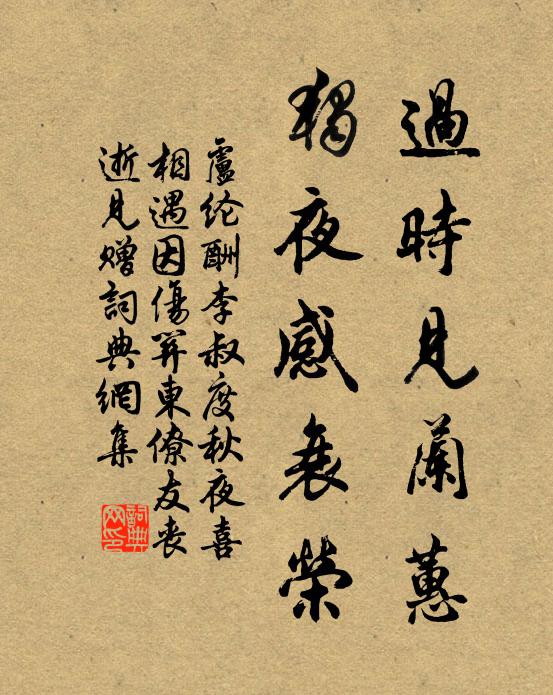 過時見蘭蕙
獨夜感衰榮
盧纶酬李叔度秋夜喜
相遇因傷關東僚友喪
逝見贈詞典網集
詞典网印